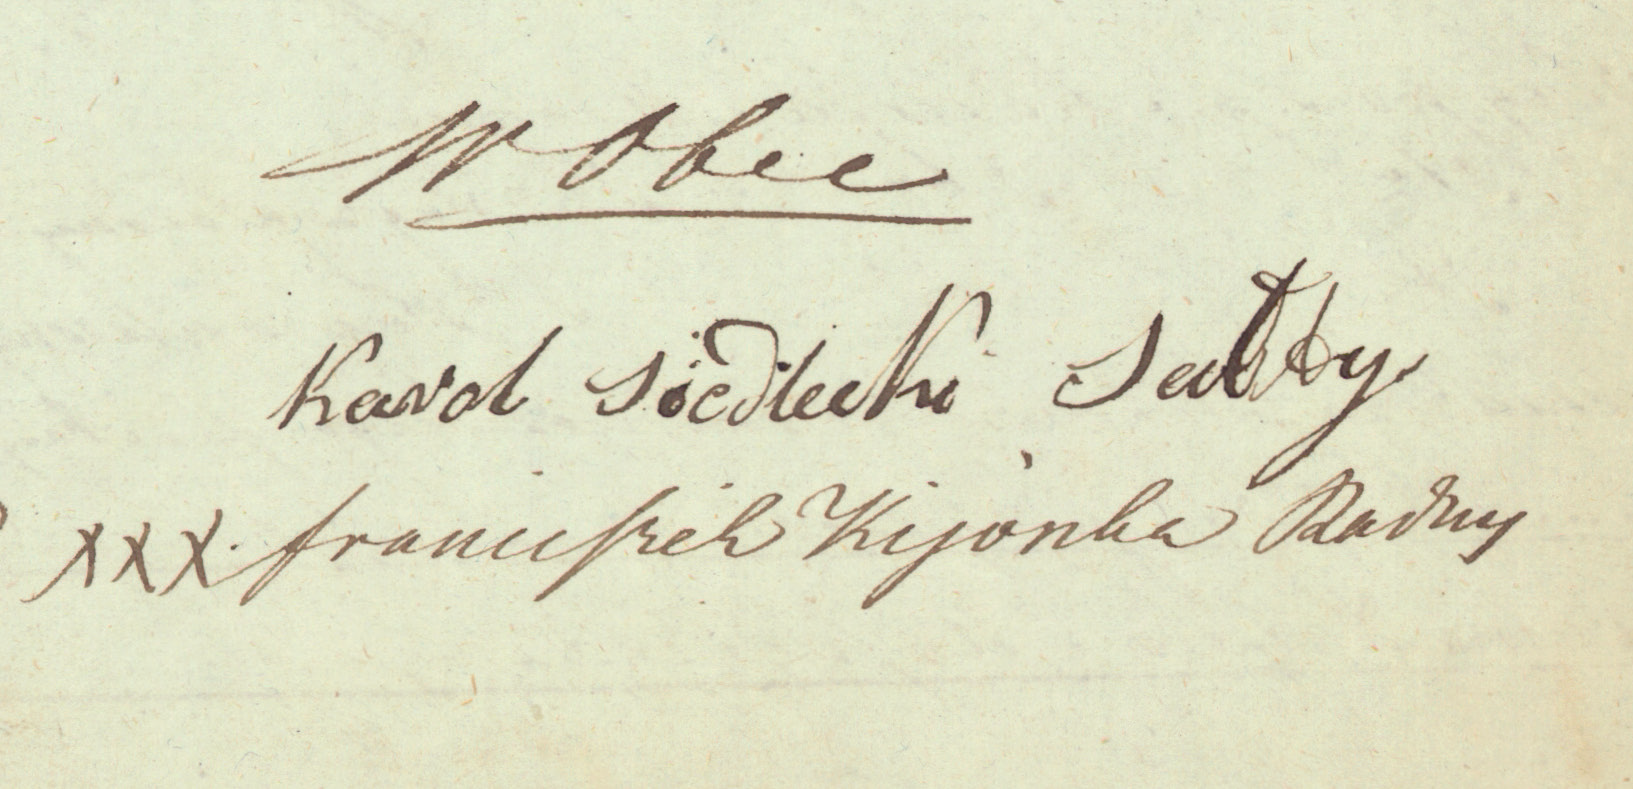 W Obec
Karol Siedlecki
XXX franciszek Kijonka Radny